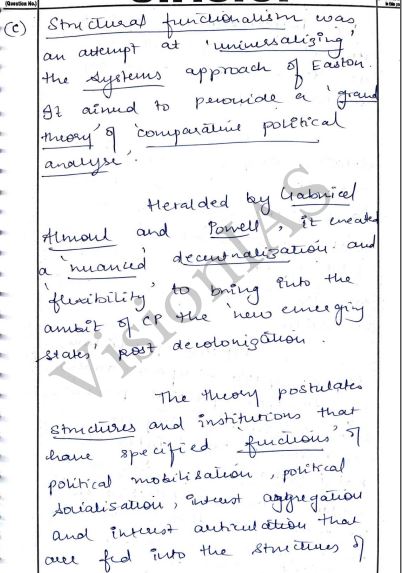 (Question No.)
(c) Structural functionalism was
an attempt at 'universalizing'
the systems approach of Easton.
It aimed to provide a 'grand
theory' of 'comparative political
analyse'.
Heralded by Gabriel
Almond and Powell, it created
a 'nuanced' decentralization and
'flexibility' to bring into the
ambit of CP the 'new emerging
states' post decolonization.
The theory postulates
structures and institutions that
have specified 'functions' of
political mobilisation, political
socialisation, interest aggregation
and interest articulation that
are fed into the structures of
VisionIAS